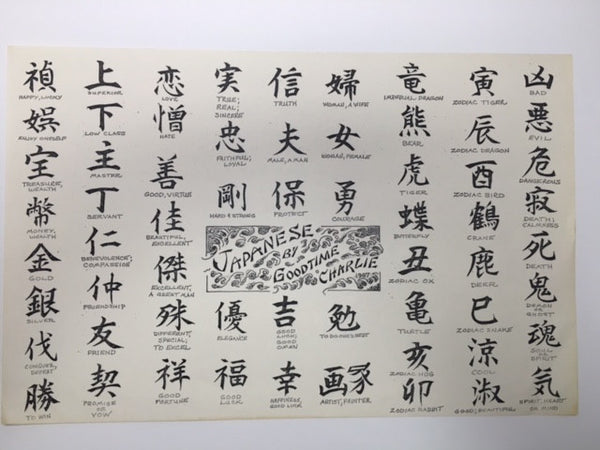 禎
HAPPY, LUCKY
娯
ENJOY ONESELF
宝
TREASURE,
WEALTH
幣
MONEY,
WEALTH
金
GOLD
銀
SILVER
伐
CONQUER,
DEFEAT
勝
TO WIN
上
SUPERIOR
下
LOW CLASS
主
MASTER
丁
SERVANT
仁
BENEVOLENCE;
COMPASSION
仲
FRIENDSHIP
友
FRIEND
契
PROMISE
OR
VOW
恋
LOVE
憎
HATE
善
GOOD, VIRTUE
佳
BEAUTIFUL,
EXCELLENT
傑
EXCELLENT,
A GREAT MAN
殊
DIFFERENT,
SPECIAL;
TO EXCEL
祥
GOOD
FORTUNE
実
TRUE;
REAL;
SINCERE
忠
FAITHFUL;
LOYAL
剛
HARD & STRONG
優
ELEGANCE
福
GOOD
LUCK
信
TRUTH
夫
MALE, A MAN
保
PROTECT
吉
GOOD
LUCK;
GOOD
OMEN
幸
HAPPINESS,
GOOD LUCK
婦
WOMAN, A WIFE
女
WOMAN, FEMALE
勇
COURAGE
勉
TO DO ONE'S BEST
画家
ARTIST, PAINTER
JAPANESE
BY
GOODTIME
CHARLIE
竜
IMPERIAL DRAGON
熊
BEAR
虎
TIGER
蝶
BUTTERFLY
丑
ZODIAC OX
亀
TURTLE
亥
ZODIAC HOG
卯
ZODIAC RABBIT
寅
ZODIAC TIGER
辰
ZODIAC DRAGON
酉
ZODIAC BIRD
鶴
CRANE
鹿
DEER
巳
ZODIAC SNAKE
涼
COOL
淑
GOOD; BEAUTIFUL
凶
BAD
悪
EVIL
危
DANGEROUS
寂
DEATH;
CALMNESS
死
DEATH
鬼
DEMON
OR
GHOST
魂
SOUL
OR
SPIRIT
気
SPIRIT, HEART
OR MIND